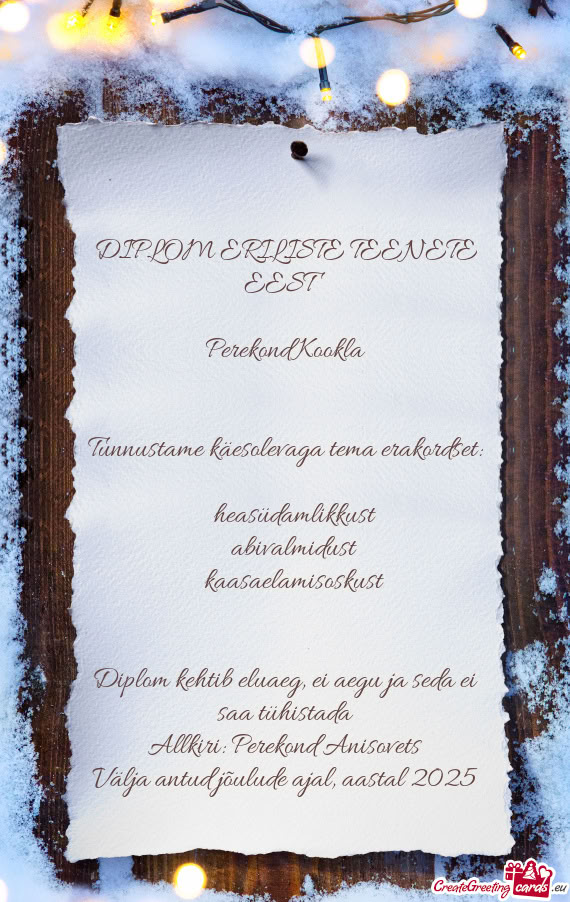 DIPLOM ERILISTE TEENETE
EEST
Perekond Kookla
Tunnustame käesolevaga tema erakordset:
heasüdamlikkust
abivalmidust
kaasaelamisoskust
Diplom kehtib eluaeg, ei aegu ja seda ei
saa tühistada
Allkiri: Perekond Anisovets
Välja antud jõulude ajal, aastal 2025
CreateGreeting cards .eu